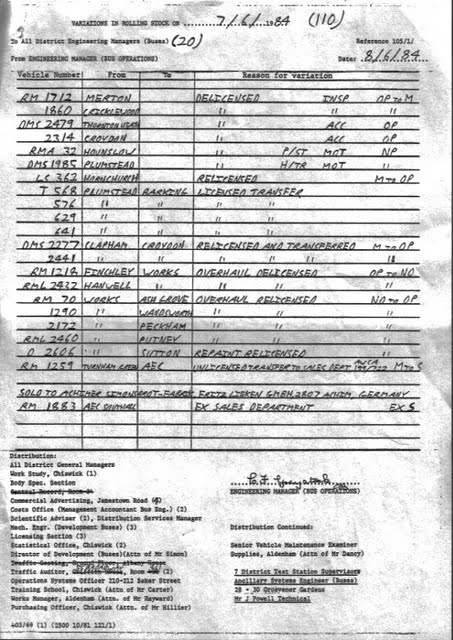 VARIATIONS IN ROLLING STOCK ON 7/6/1984 (110)
To All District Engineering Managers (Buses) (20) Reference 105/1/
From ENGINEERING MANAGER (BUS OPERATIONS) Date: 8/6/84
Vehicle Number From To Reason for variation
RM 1712 MERTON DELICENSED INSP OP to M
1860 CRICKLEWOOD " " "
DMS 2479 THORNTON HEATH " ACC OP
2314 CROYDON " ACC OP
RMA 32 HOUNSLOW " P/ST MOT NP
DMS 1985 PLUMSTEAD " H/TR MOT "
LS 362 HORNCHURCH RELICENSED M to OP
T 568 PLUMSTEAD BARKING LICENSED TRANSFER
576 " " " "
629 " " " "
641 " " " "
DMS 2277 CLAPHAM CROYDON RELICENSED AND TRANSFERRED M to OP
2441 " " " " "
RM 1214 FINCHLEY WORKS OVERHAUL DELICENSED OP to NO
RML 2432 HANWELL " " " "
RM 70 WORKS ASH GROVE OVERHAUL RELICENSED NO to OP
1290 " WANDSWORTH " " "
2172 " PECKHAM " " "
RML 2460 " PUTNEY " " "
D 2606 " SUTTON REPAINT RELICENSED "
RM 1259 TURNHAM GREEN AEC UNLICENSED TRANSFER TO SALES DEPT M to S
SOLD TO ACHIMER SIMONSBROT-FABRIK, FRITZ LIEKEN GMBH, 2807 ACHIM, GERMANY
RM 1883 AEC SOUTHALL EX SALES DEPARTMENT EX S
Distribution:
All District General Managers
Work Study, Chiswick (1)
Body Spec. Section
Central Record, Room
Commercial Advertising, Jamestown Road
ENGINEERING MANAGER (BUS OPERATIONS)
Costs Office (Management Accountant Bus Eng.) (2)
Scientific Adviser (2), Distribution Services Manager
Mech. Engr. (Development Buses) (3) Distribution Continued:
Licensing Section (3)
Statistical Office, Chiswick (2) Senior Vehicle Maintenance Examiner
Director of Development (Buses)(Attn of Mr Simon) Supplies, Aldenham (Attn of Mr Dancy)
Traffic Costing,
Traffic Auditor, Griffith House, Room (2) 7 District Test Station Supervisors
Operations Systems Officer 210-212 Baker Street Ancillary Systems Engineer (Buses)
Training School, Chiswick (Attn of Mr Carter) 28 - 30 Grosvenor Gardens
Works Manager, Aldenham (Attn. of Mr Hayward) Mr J Powell Technical
Purchasing Officer, Chiswick (Attn of Mr Hillier)
405/69 (1) (2500 10/81 121/1)